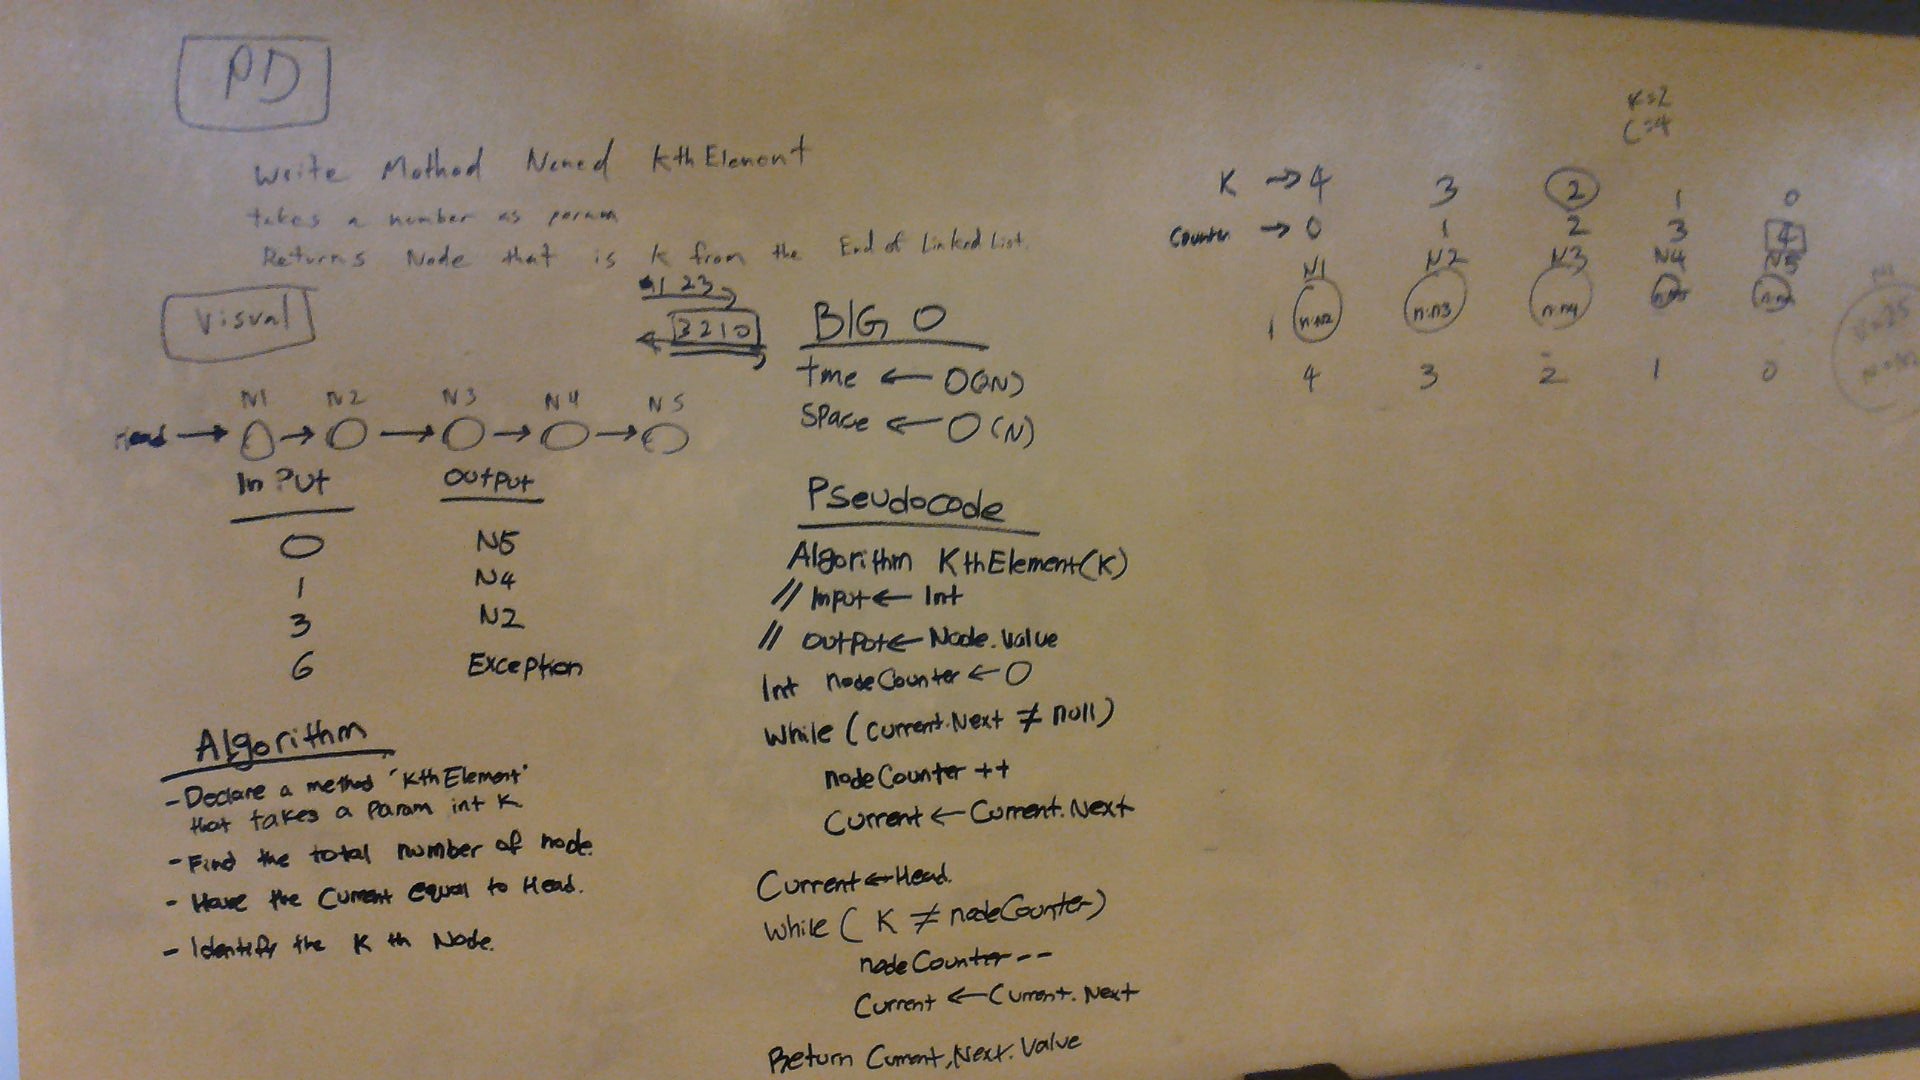 PD
Write Method Named KthElement
takes a number as param
Returns Node that is K from the End of Linked List.
Visual
1 2 3
3 2 1 0
N1 N2 N3 N4 N5
Head
Input Output
0 N5
1 N4
3 N2
6 Exception
Algorithm
- Declare a method "KthElement"
that takes a param int K
- Find the total number of node.
- Have the Current equal to Head.
- Identify the K th Node.
BIG O
time ← O(2N)
Space ← O(N)
Pseudocode
Algorithm KthElement(K)
// Input ← Int
// output ← Node.Value
Int nodeCounter ← 0
While (Current.Next ≠ null)
nodeCounter ++
Current ← Current.Next
Current ← Head.
While ( K ≠ nodeCounter)
nodeCounter --
Current ← Current.Next
Return Current.Next.Value
K=2
C=4
K → 4 3 2 1 0
Counter → 0 1 2 3 4
N1 N2 N3 N4 N5
n:N2 n:N3 n:N4
1
4 3 2 1 0